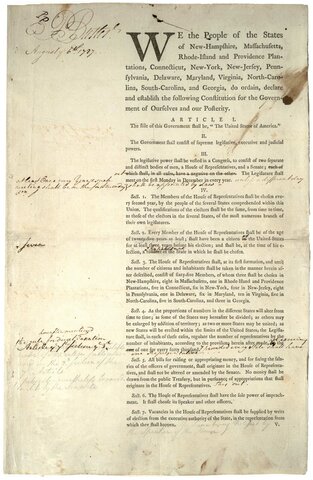 August 6th 1787
WE the People of the States
of New-Hampshire, Massachusetts,
Rhode-Island and Providence Plan-
tations, Connecticut, New-York, New-Jersey, Penn-
sylvania, Delaware, Maryland, Virginia, North-Caro-
lina, South-Carolina, and Georgia, do ordain, declare
and establish the following Constitution for the Govern-
ment of Ourselves and our Posterity.
ARTICLE I.
The stile of this Government shall be, "The United States of America."
II.
The Government shall consist of supreme legislative, executive and judicial
powers.
III.
The legislative power shall be vested in a Congress, to consist of two separate
and distinct bodies of men, a House of Representatives, and a Senate; each of
which shall, in all cases, have a negative on the other. The Legislature shall
meet on the first Monday in December in every year.
IV.
Sect. 1. The Members of the House of Representatives shall be chosen
every second year, by the people of the several States comprehended within this
Union. The qualifications of the electors shall be the same, from time to time,
as those of the electors in the several States, of the most numerous branch of
their own legislatures.
Sect. 2. Every Member of the House of Representatives shall be of the age
of twenty-five years at least; shall have been a citizen in the United States
for at least three years before his election; and shall be, at the time of his elec-
tion, a resident of the State in which he shall be chosen.
seven
Sect. 3. The House of Representatives shall, at its first formation, and until
the number of citizens and inhabitants shall be taken in the manner herein af-
ter described, consist of sixty-five Members, of whom three shall be chosen in
New-Hampshire, eight in Massachusetts, one in Rhode-Island and Providence
Plantations, five in Connecticut, six in New-York, four in New-Jersey, eight
in Pennsylvania, one in Delaware, six in Maryland, ten in Virginia, five in
North-Carolina, five in South-Carolina, and three in Georgia.
Sect. 4. As the proportions of numbers in the different States will alter from
time to time; as some of the States may hereafter be divided; as others may
be enlarged by addition of territory; as two or more States may be united; as
new States will be erected within the limits of the United States, the Legisla-
ture shall, in each of these cases, regulate the number of representatives by the
number of inhabitants, according to the provisions herein after made, at the
rate of one for every forty thousand.
Sect. 5. All bills for raising or appropriating money, and for fixing the sala-
ries of the officers of government, shall originate in the House of Representatives,
and shall not be altered or amended by the Senate. No money shall be
drawn from the public Treasury, but in pursuance of appropriations that shall
originate in the House of Representatives.
Sect. 6. The House of Representatives shall have the sole power of impeach-
ment. It shall choose its Speaker and other officers.
Sect. 7. Vacancies in the House of Representatives shall be supplied by writs
of election from the executive authority of the State, in the representation from
which they shall happen.
V.